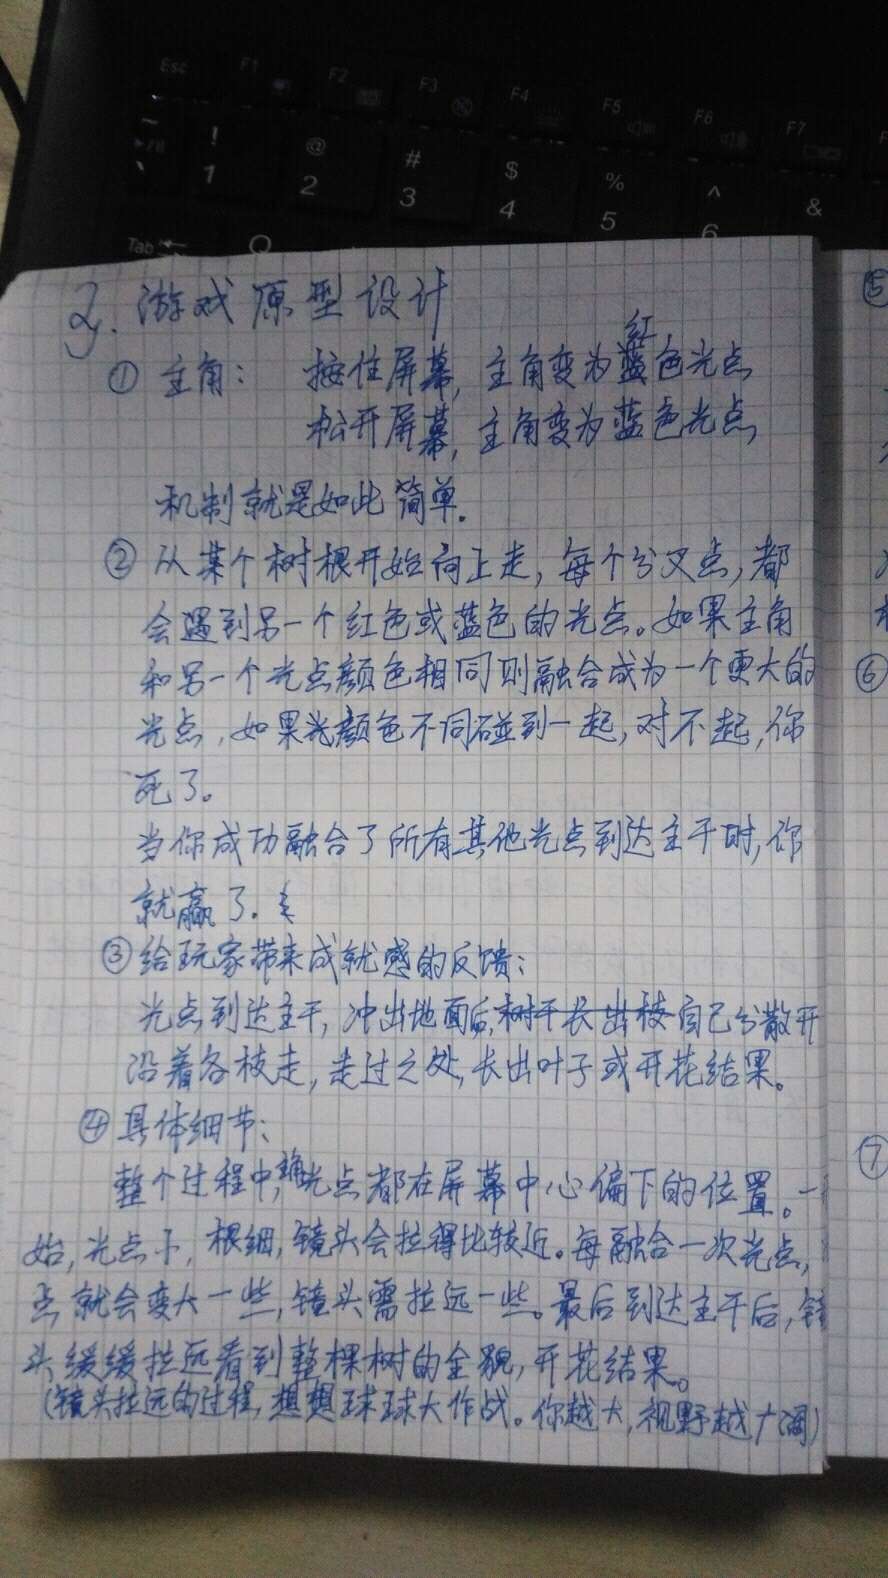 Esc F1 F2 F3 F4 F5 F6 F7
! @ # $ % ^ &
1 2 3 4 5 6
Tab Q
2. 游戏原型设计
① 主角: 按住屏幕, 主角变为红色光点
松开屏幕, 主角变为蓝色光点,
机制就是如此简单.
② 从某个树根开始向上走, 每个分叉点, 都
会遇到另一个红色或蓝色的光点。如果主角
和另一个光点颜色相同则融合成为一个更大的
光点, 如果光颜色不同碰到一起, 对不起, 你
死了。
当你成功融合了所有其他光点到达主干时, 你
就赢了.
③ 给玩家带来成就感的反馈:
光点到达主干, 冲出地面后, 树干长出枝自己分散开
沿着各枝走, 走过之处, 长出叶子或开花结果。
④ 具体细节:
整个过程中, 光点都在屏幕中心偏下的位置。一
始, 光点小, 根细, 镜头会拉得比较近。每融合一次光点,
点就会变大一些, 镜头需拉远一些。最后到达主干后, 镜
头缓缓拉远看到整棵树的全貌, 开花结果。
(镜头拉远的过程, 想想球球大作战。你越大, 视野越广阔)
⑤
⑥
⑦